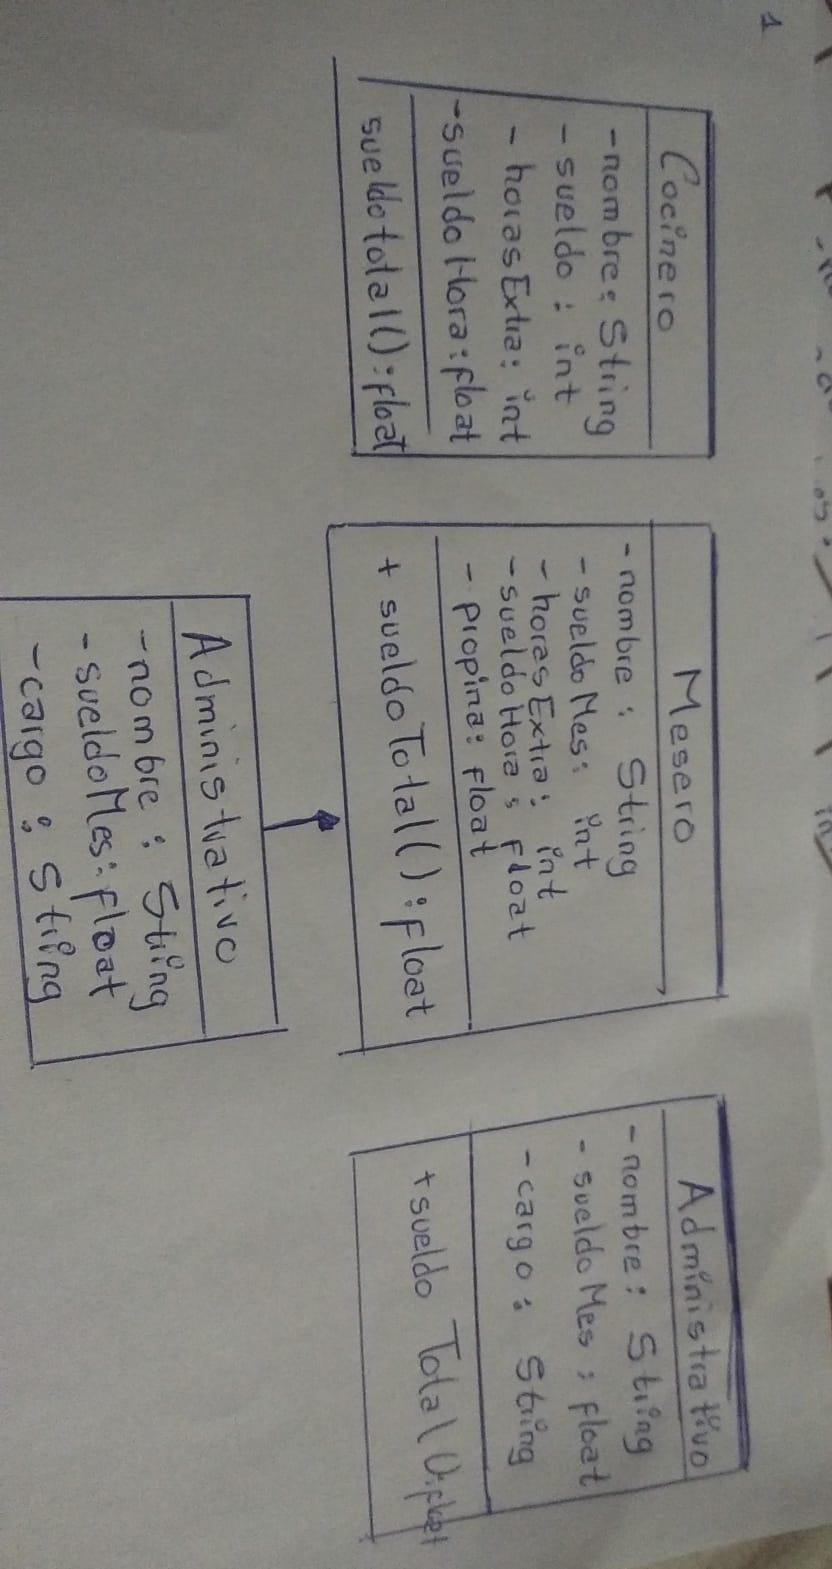 1
Cocinero
- nombre: String
- sueldo : int
- horasExtra: int
- sueldoHora: float
sueldototal(): float
Mesero
- nombre : String
- sueldoMes: int
- horasExtra: int
- sueldoHora : float
- propina: float
+ sueldoTotal(): float
Administrativo
- nombre: String
- sueldoMes : float
- cargo: String
+ sueldo Total(): float
Administrativo
- nombre: String
- sueldoMes: float
- cargo: String